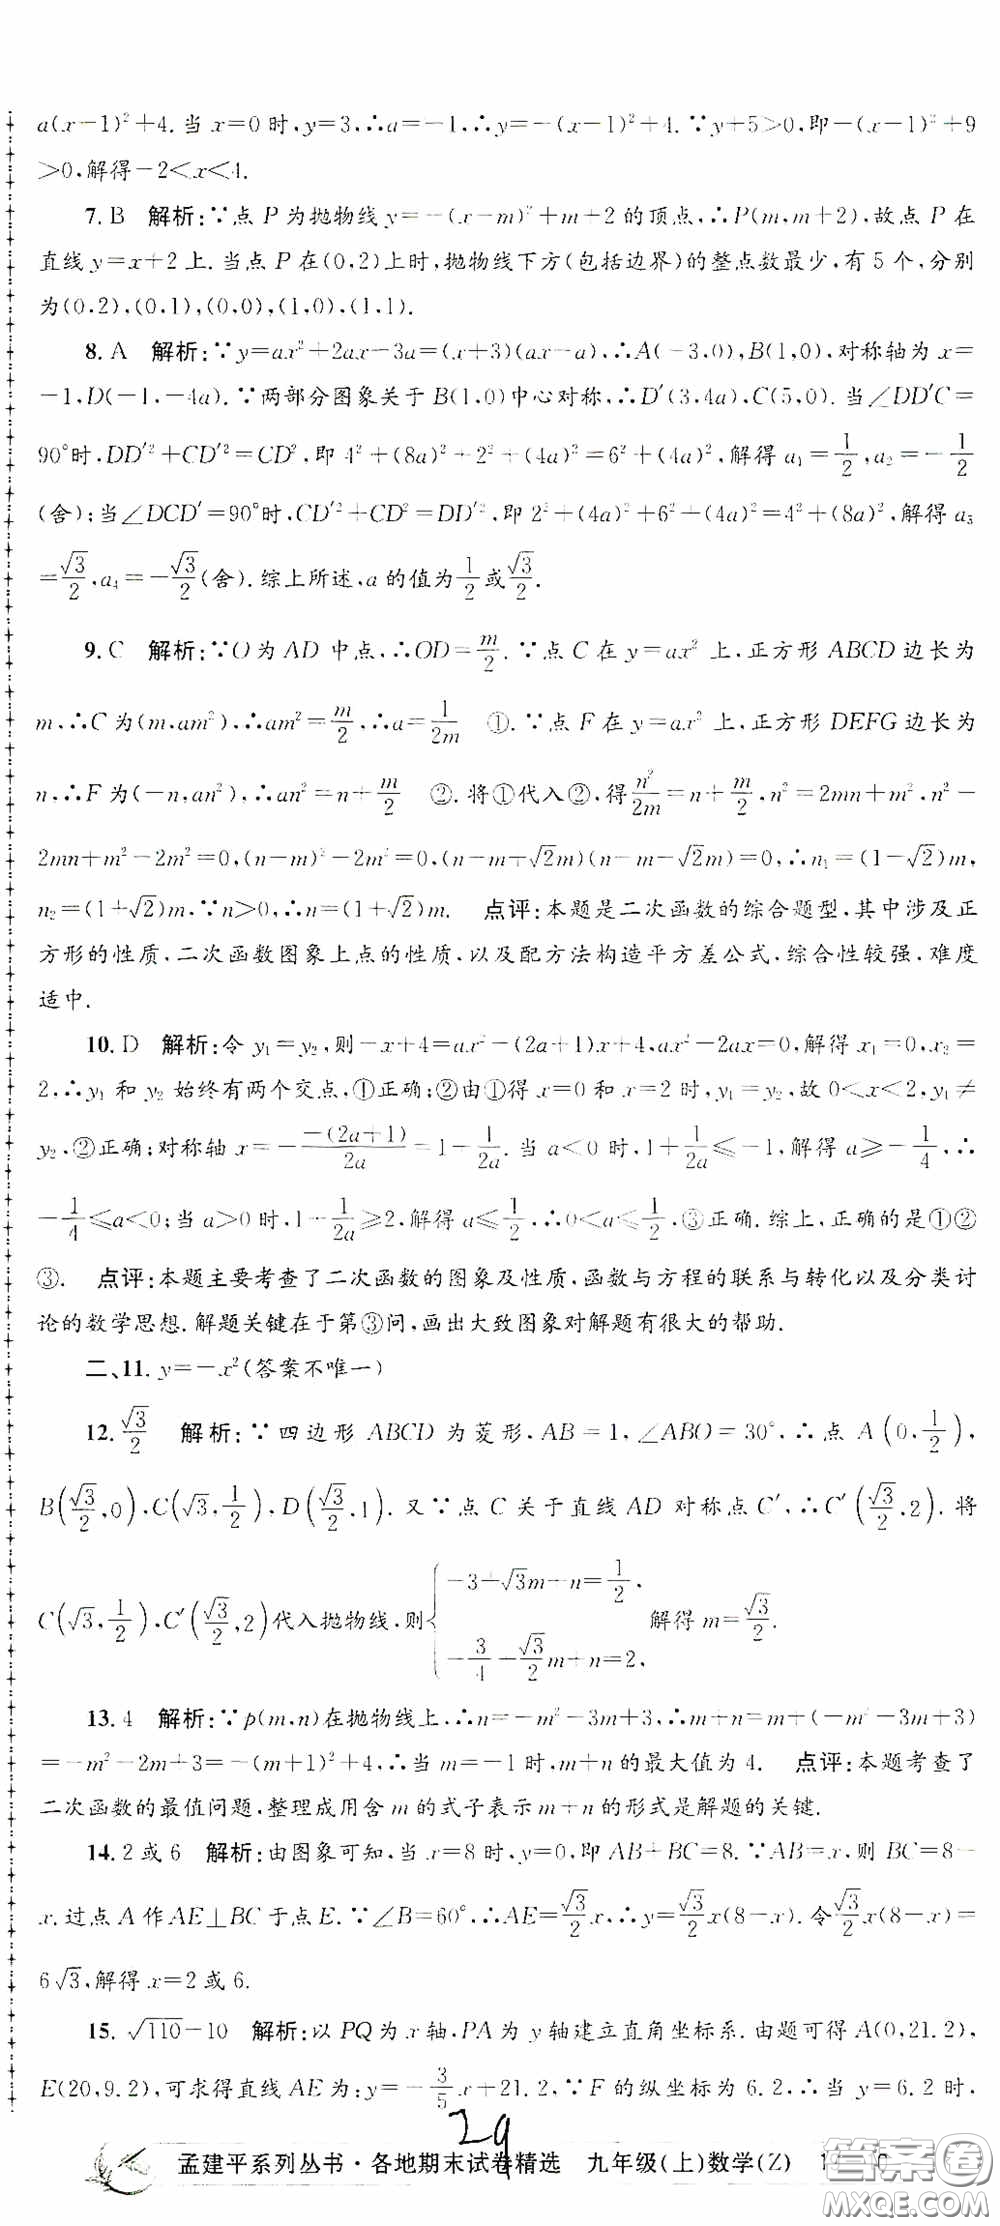 a(x-1)²+4.当 x=0 时,y=3,∴a=-1,∴y=-(x-1)²+4.∵y+5>0,即-(x-1)²+9
>0,解得-2<x<4.
7. B 解析:∵点 P 为抛物线 y=-(x-m)²+m+2 的顶点,∴P(m,m+2),故点 P 在
直线 y=x+2 上.当点 P 在(0,2)上时,抛物线下方(包括边界)的整点数最少,有 5 个,分别
为(0,2),(0,1),(0,0),(1,0),(1,1).
8. A 解析:∵y=ax²+2ax-3a=(x+3)(ax-a),∴A(-3,0),B(1,0),对称轴为 x=
-1,D(-1,-4a).∵两部分图象关于 B(1,0)中心对称,∴D′(3,4a),C(5,0).当∠DD′C=
90°时,DD′²+CD′²=CD²,即 4²+(8a)²+2²+(4a)²=6²+(4a)²,解得 a₁=1/2,a₂=-1/2
(舍);当∠DCD′=90°时,CD′²+CD²=DD′²,即 2²+(4a)²+6²+(4a)²=4²+(8a)²,解得 a₃
=√3/2,a₄=-√3/2(舍).综上所述,a 的值为1/2或√3/2.
9. C 解析:∵O 为 AD 中点,∴OD=m/2.∵点 C 在 y=ax² 上,正方形 ABCD 边长为
m,∴C 为(m,am²),∴am²=m/2,∴a=1/2m ①.∵点 F 在 y=ax² 上,正方形 DEFG 边长为
n,∴F 为(-n,an²),∴an²=n+m/2 ②.将①代入②,得n²/2m=n+m/2,n²=2mn+m²,n²-
2mn+m²-2m²=0,(n-m)²-2m²=0,(n-m+√2m)(n-m-√2m)=0,∴n₁=(1-√2)m,
n₂=(1+√2)m,∵n>0,∴n=(1+√2)m. 点评:本题是二次函数的综合题型,其中涉及正
方形的性质,二次函数图象上点的性质,以及配方法构造平方差公式,综合性较强,难度
适中.
10. D 解析:令 y₁=y₂,则-x+4=ax²-(2a+1)x+4,ax²-2ax=0,解得 x₁=0,x₂=
2,∴y₁ 和 y₂ 始终有两个交点,①正确;②由①得 x=0 和 x=2 时,y₁=y₂,故 0<x<2,y₁≠
y₂,②正确;对称轴 x=-(-(2a+1))/2a=1-1/2a.当 a<0 时,1+1/2a≤-1,解得 a≥-1/4,∴
-1/4≤a<0;当 a>0 时,1+1/2a≥2,解得 a≤1/2,∴0<a≤1/2,③正确.综上,正确的是①②
③. 点评:本题主要考查了二次函数的图象及性质,函数与方程的联系与转化以及分类讨
论的数学思想.解题关键在于第③问,画出大致图象对解题有很大的帮助.
二、11. y=-x²(答案不唯一)
12. √3/2 解析:∵四边形 ABCD 为菱形,AB=1,∠ABO=30°,∴点 A(0,1/2),
B(√3/2,0),C(√3,1/2),D(√3/2,1).又∵点 C 关于直线 AD 对称点 C′,∴C′(√3/2,2).将
C(√3,1/2),C′(√3/2,2)代入抛物线,则{-3+√3m+n=1/2, -3/4+√3/2m+n=2, 解得 m=√3/2.
13. 4 解析:∵p(m,n)在抛物线上,∴n=-m²-3m+3,∴m+n=m+(-m²-3m+3)
=-m²-2m+3=-(m+1)²+4,∴当 m=-1 时,m+n 的最大值为 4. 点评:本题考查了
二次函数的最值问题,整理成用含 m 的式子表示m+n 的形式是解题的关键.
14. 2 或 6 解析:由图象可知,当 x=8时,y=0,即 AB+BC=8.∵AB=x,则 BC=8-
x.过点 A 作 AE⊥BC 于点 E.∵∠B=60°,∴AE=√3/2x,∴y=√3/2x(8-x).令√3/2x(8-x)=
6√3,解得 x=2 或 6.
15. √110-10 解析:以 PQ 为 x 轴,PA 为 y 轴建立直角坐标系.由题可得 A(0,21.2),
E(20,9.2),可求得直线 AE 为:y=-3/5x+21.2,∵F 的纵坐标为 6.2,∴当 y=6.2 时,
29
孟建平系列丛书·各地期末试卷精选 九年级(上)数学(Z)
答案圈
MXQE.COM